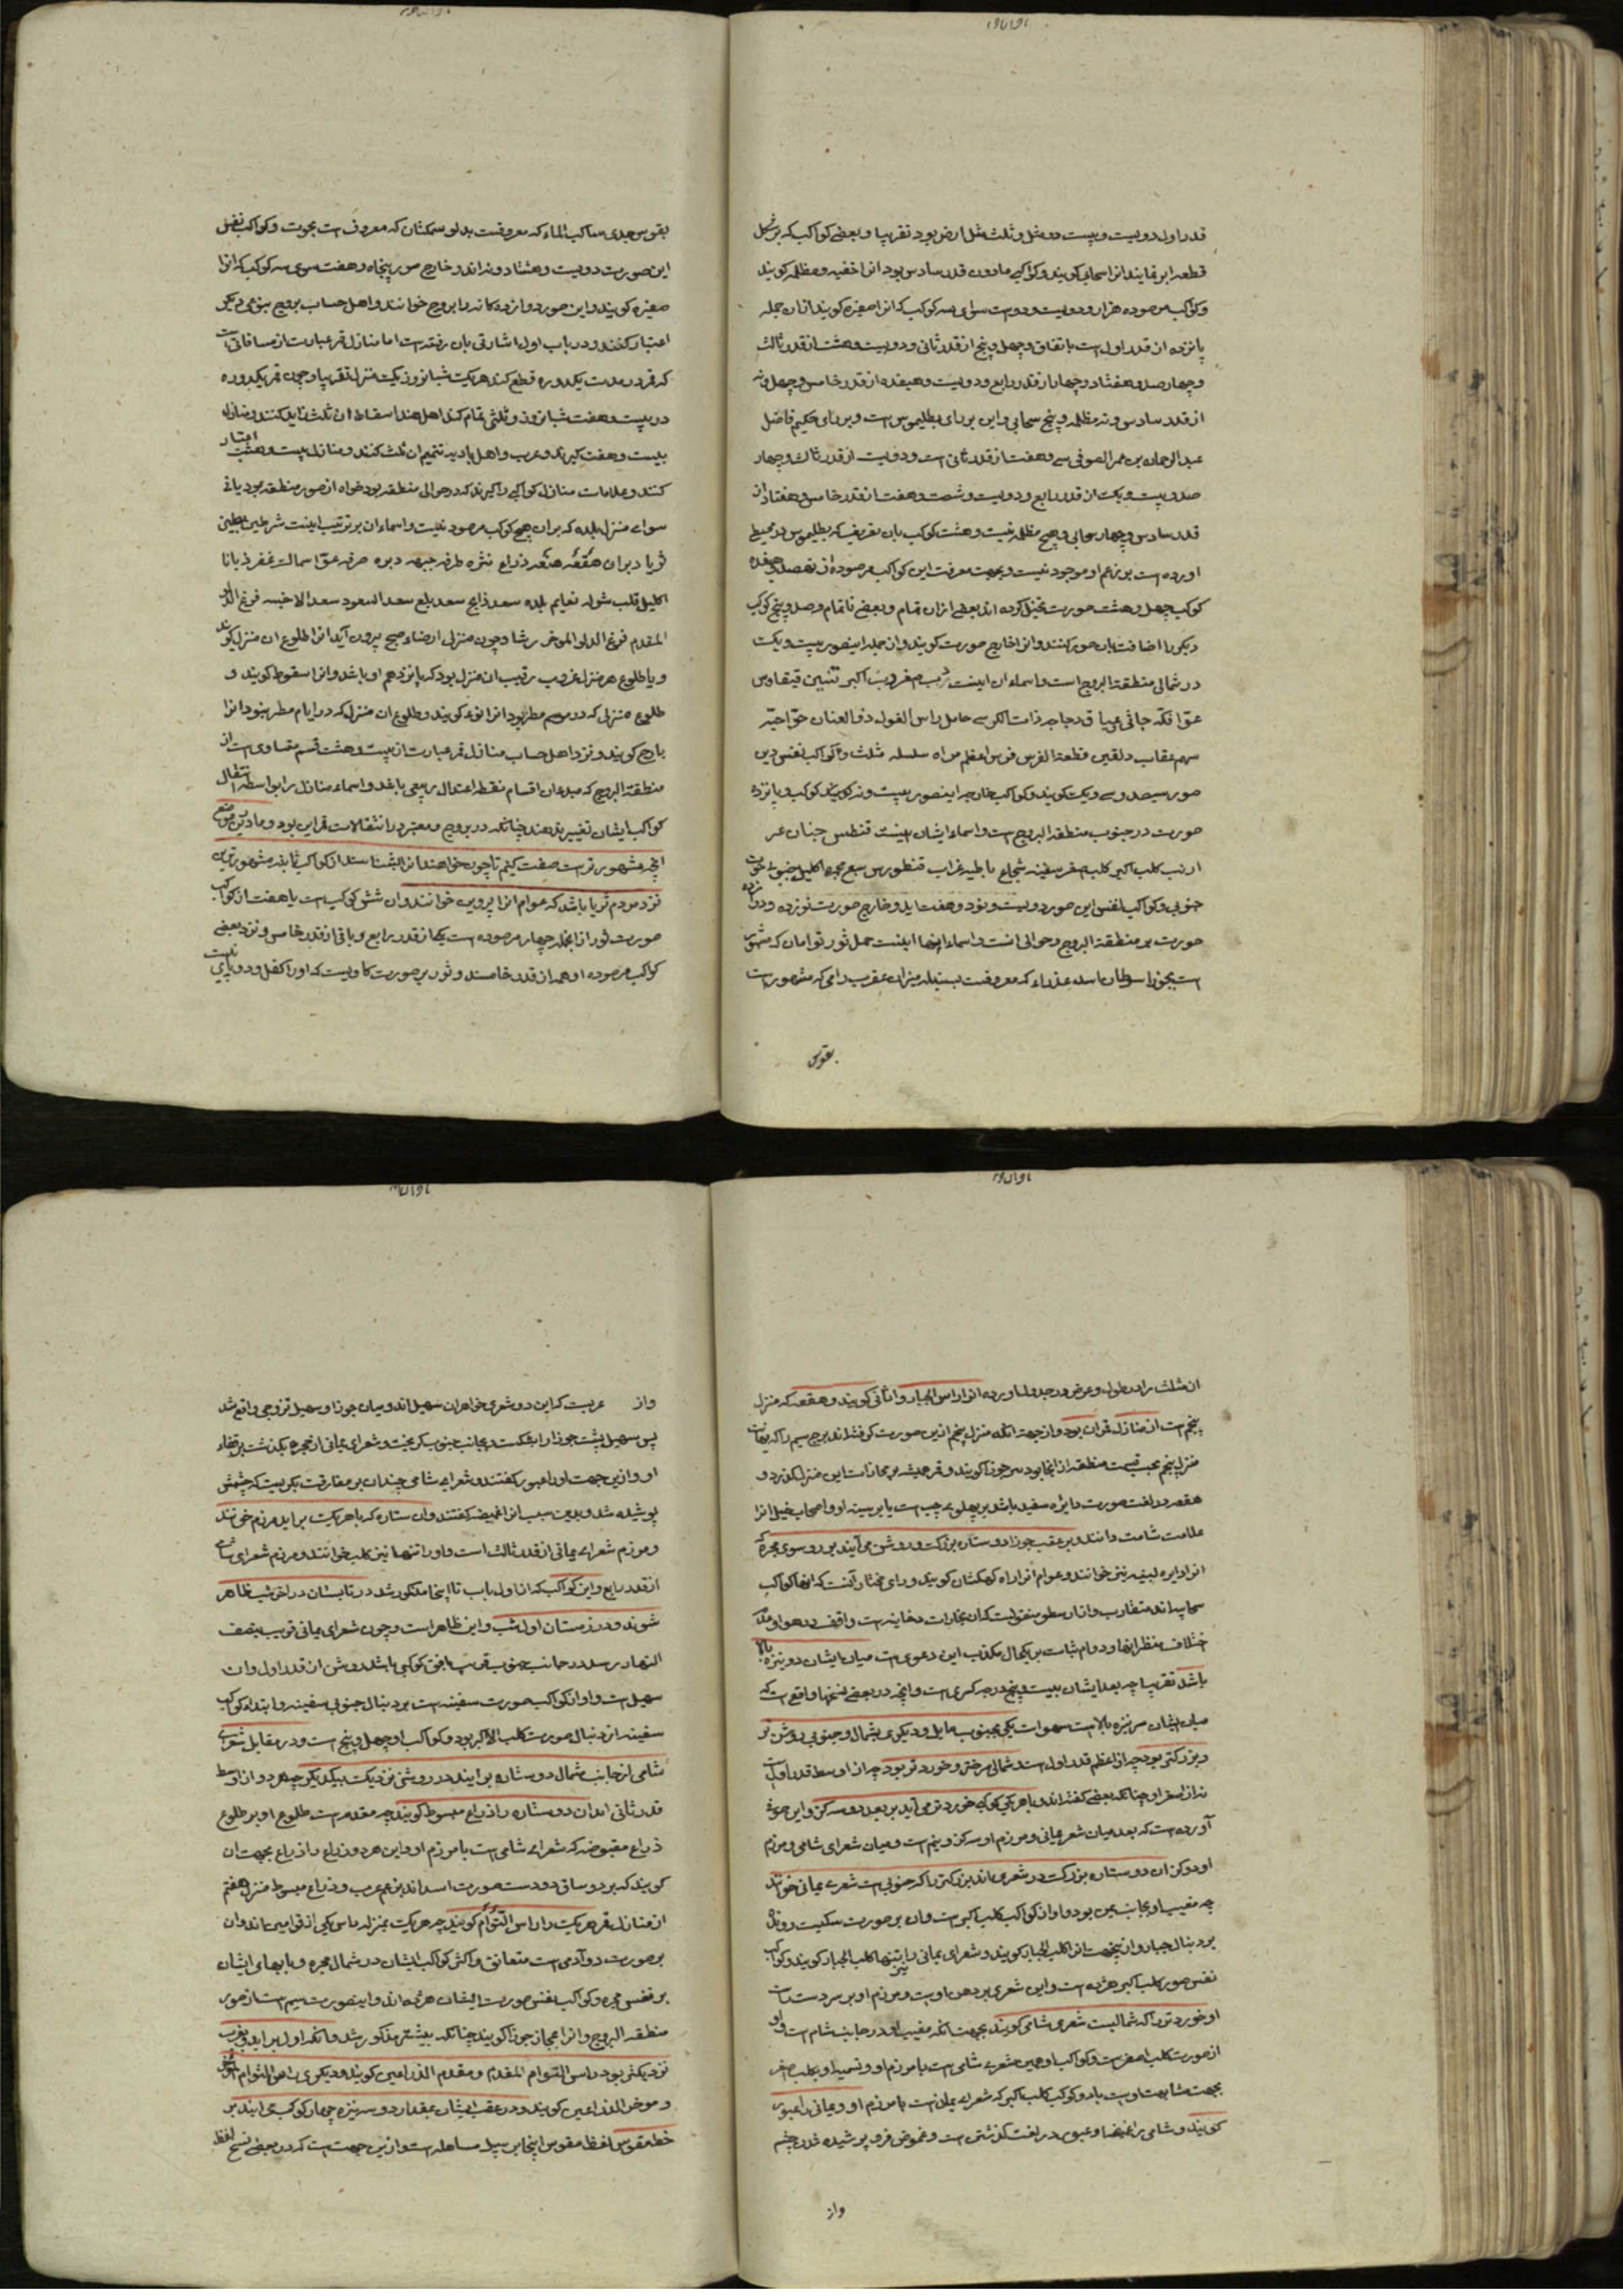 قدر اول دویست و بیست دو مثل و ثلث مثل ارض بود تقریبا و بعضی کواکب که بر شکل
قطعه ابر نمایند انرا سحابی کویند و کواکبی مادون قدر سادس بود انرا خفیه و مظلمه کویند
و کواکب مرصوده هزار و دویست و دو است سوای سه کوکب که انرا صفیره کویند از ان جمله
پانزده از قدر اول است باتفاق و چهل و پنج از قدر ثانی و دویست و هشت از قدر ثالث
و چهارصد و هفتاد و چهار از قدر رابع و دویست و هیفده از قدر خامس و چهل و نه
از قدر سادس و نه مظلمه و پنج سحابی و این بر رای بطلیموس است و بر رای حکیم فاضل
عبد الرحمان بن عمر الصوفی سی و هفت از قدر ثانی است و دویست از قدر ثالث و چهار
صد و بیست و یک از قدر رابع و دویست و شصت و هفت از قدر خامس و هفتاد از
قدر سادس و چهار سحابی و هیچ مظلمه نیست و هشت کوکب بان تعریف که بطلیموس در مجسطی
اورده است بر زعم او موجود نیست و بجهت معرفت این کواکب مرصوده از نهصد و هیفده
کوکب چهل و هشت صورت تخیل کرده اند بعضی ازان تمام و بعضی ناتمام و صد و پنج کوکب
دیکر را اضافت بان صور کنند و انرا خارج صورت کویند و از جمله این صور بیست و یک
در شمالی منطقة البروج است و اسماء ان اینست دب اصغر دب اکبر تنین قیقاوس
عوا فکه جاثی شلیاق دجاجه ذات الکرسی حامل راس الغول ذو العنان حوا حیه
سهم عقاب دلفین قطعة الفرس فرس اعظم مراه سلسله مثلث و کواکب نفس این
صور سیصد و سی و یک کویند و کواکب خارجه اینصور بیست و نه کویند کوکب و پانزده
صورت در جنوب منطقة البروج است و اسماء ایشان اینست قنطس جبار نهر
ارنب کلب اکبر کلب اصغر سفینه شجاع باطیه غراب قنطورس سبع مجمره اکلیل جنوبی حوت
جنوبی و کواکب نفس این صور دویست و نود و هفت اید و خارج صورت نوزده و دوازده
صورت بر منطقة البروج و حوالی انست و اسماء اینها اینست حمل ثور توامان که مشهور
است بجوزا سرطان اسد عذراء که معروفست بسنبله میزان عقرب رامی که مشهور است
بقوس
بقوس جدی ساکب الماء که معروفست بدلو سمکتان که معروف است بحوت و کواکب نفس
این صورت دویست و هشتاد و نه اند و خارج صور پنجاه و هفت سوی سه کوکب که انرا
صفیره کویند و این صور دوازده کانه را بروج خوانند و اهل حساب بروج بنوعی دیکر
اعتبار کنند و در باب اول اشارتی بان رفته است اما منازل قمر عبارت از مسافاتی است
که قمر در مدت یکدوره قطع کند هر یک شبانروز یک منزل تقریبا و چون قمر یکدوره
در بیست و هفت شبانروز و ثلثی تمام کند اهل هند اسقاط ان ثلث زاید کنند و منازل
بیست و هفت کیرند و عرب و اهل بادیه تتمیم ان ثلث کنند و منازل بیست و هشت اعتبار
کنند و علامات منازل کواکبی را کیرند که در حوالی منطقه بود خواه از صور منطقه بود یا نی
سوای منزل بلده که بران هیچ کوکب مرصود نیست و اسماء ان بر ترتیب اینست شرطین بطین
ثریا دبران هقعه هنعه ذراع نثره طرفه جبهه دبره صرفه عوا سماک غفر زبانا
اکلیل قلب شوله نعایم بلده سعد ذابح سعد بلع سعد السعود سعد الاخبیه فرغ الدلو
المقدم فرغ الدلو الموخر رشا و چون منزلی از ضیاء صبح بیرون آید انرا طلوع ان منزل کویند
و با طلوع هر منزل غروب رقیب ان منزل بود که پانزدهم او باشد و انرا سقوط کویند و
طلوع منزلی که در موسم مطر بود انرا نوء کویند و طلوع ان منزل که در ایام مطر نبود انرا
بارح کویند و نزد اهل حساب منازل قمر عبارت از بیست و هشت قسم مساوی است از
منطقة البروج که مبدء ان اقسام نقطه اعتدال ربیعی باشد و اسماء منازل را بواسطه انتقال
کواکب ایشان تغییر ندهند چنانکه در بروج و معتبر در انتقالات قمر این بود و ما درین موضع
انچه مشهورتر است صفت کنیم تا چون خواهند انرا بشناسند از کواکب ثابته مشهورترین
نزد مردم ثریا باشد که عوام انرا پروین خوانند و ان شش کوکب است یا هفت از کواکب
صورت ثور از انجمله چهار مرصوده است یکی از قدر رابع و باقی از قدر خامس و نزد بعضی
کواکب مرصوده او همه از قدر خامسند و ثور بر صورت کاویست که او را کفل و دو پای نیست
ان مثلث را در طول و عرض در جدول اورده انرا راس الجبار و اثافی کویند و هقعه که منزل
پنجم است از منازل قمر ان بود و از جهة انکه منزل پنجم ازین صورت کرفته اند برج سیم را که نهایت
منزل پنجم بحسب قسمت منطقه از انجا بود سر جوزا کویند و قمر همیشه بر محازات این منزل کذرد و
هقعه در لغت صورت دایره سفید باشد بر پهلوی چپ است یا بر سینه او و اصحاب خیل انرا
علامت شامت دانند و بر عقب جوزا دو ستاره بزرک و روشن می آیند بر دو سوی مجره که
انرا دایره لبنیه نیز خوانند و عوام انرا راه کهکشان کویند و رای مختار آنست که انها کواکب
سحابی اند متقارب و از ارسطو منقولست که ان بخارات دخانیه است واقف در هوا و عدم
اختلاف منظر انها و دوام ثبات بر یکحال مکذب این دعوی است میان ایشان دو نیزه بالا
باشد تقریبا چه بعد ایشان بیست و پنج درجه کسری است و انچه در بعضی نسخها واقع است که
میان ایشان سر نیزه بالا است سهو است یکی بجنوب مایل و دیکری بشمال و جنوبی روشن تر
و بزرکتر بود چه از اعظم قدر اول است و شمالی سرختر و خوردتر بود چه از اوسط قدر اول است
نه از اصغر او چنانکه بعضی کفته اند و با هر یکی کوکبی خوردتر می آید بر بعد دو سه کز و این صوفی
آورده است که بعد میان شعر یمانی و مرزم او سه کز و نیم است و میان شعرای شامی و مرزم
او دو کز ان دو ستاره بزرک دو شعری اند بزرکتر را که جنوبی است شعرای یمانی خوانند
چه مغیب او بجانب یمن بود و او از کواکب کلب اکبر است و ان بر صورت سکیست رونده
بر دنبال جبار و ازینجهت انرا کلب الجبار کویند و شعرای یمانی را نیز بتنها کلب الجبار کویند و کواکب
نفس صور کلب اکبر هژده است و این شعری بر دهن اوست و مرزم او بر سر دست راست
او خوردتر را که شمالیست شعری شامی کویند بجهت انکه مغیب او در جانب شام است و او
از صورت کلب اصغر است و کواکب او همین شعرای شامی است با مرزم او و تسمیه او بکلب اصغر
بجهت مشابهت اوست بادو کوکب کلب اکبر که شعرای یمانی است با مرزم او و یمانی را عبور
کویند و شامی را غمیضا و عبور در لغت کذشتن است و غموض فرو پوشیده شدن چشم
واز
واز عربست که این دو شعری خواهران سهیل اند و میان جوزا و سهیل تزوجی واقع شد
پس سهیل پشت جوزا را بشکست و بجانب جنوب کریخت و شعرای یمانی از مجره بکذشت بر قفاء
او و ازین جهت او را عبور کفتند و شعرای شامی چندان بر مفارقت بکریست که چشمش
پوشیده شد و بدین سبب انرا غمیضه کفتند و ان ستاره که با هر یک براید مرزم خوانند
و مرزم شعرای یمانی از قدر ثالث است و او را تنها نیز کلب خوانند و مرزم شعرای شامی
از قدر رابع و این کواکب که از اول باب تا اینجا مذکور شد در تابستان در اخر شب ظاهر
شوند و در زمستان اول شب و این ظاهر است و چون شعرای یمانی قریب بنصف
النهار رسد در جانب جنوب قریب بافق کوکبی باشد روشن از قدر اول و ان
سهیل است و او از کواکب صورت سفینه است بر دنبال جنوبی سفینه و ابتداء کواکب
سفینه از دنبال صورت کلب الاکبر بود و کواکب او چهل و پنج است و در مقابل شعری
شامی از جانب شمال دو ستاره برایند در روشنی نزدیک بیکدیکر چه هر دو از اوسط
قدر ثانی اند ان دو ستاره را ذراع مبسوط کویند چه مقدم است طلوع او بر طلوع
ذراع مقبوضه که شعرای شامی است با مرزم او و این هر دو ذراع را ذراع بجهت ان
کویند که بر دو ساق دو دست صورت اسد اند بزعم عرب و ذراع مبسوط منزل هفتم
از منازل قمر هر یک را راس التوام کویند چه هر یک بمنزله راس یکی از توامین اند و ان
بر صورت دو آدمی است متعانق و اکثر کواکب ایشان در شمال مجره و پایهای ایشان
بر نفس مجره و کواکب نفس صورت ایشان هژده اند و این صورت سیم است از صور
منطقة البروج و انرا مجاز جوزا کویند چنانکه بیشتر مذکور شد و انکه اول براید و بمغرب
نزدیکتر بود راس التوام المقدم و مقدم الذراعین کویند و دیکری راس التوام الموخر
و موخر الذراعین کویند و در عقب ایشان بمقدار دو سر نیزه چهار کوکب می ایند بر
خط مقوس لفظ مقوس اینجا بر سبیل مساهله است و ازین جهت است که در بعضی نسخ لفظ